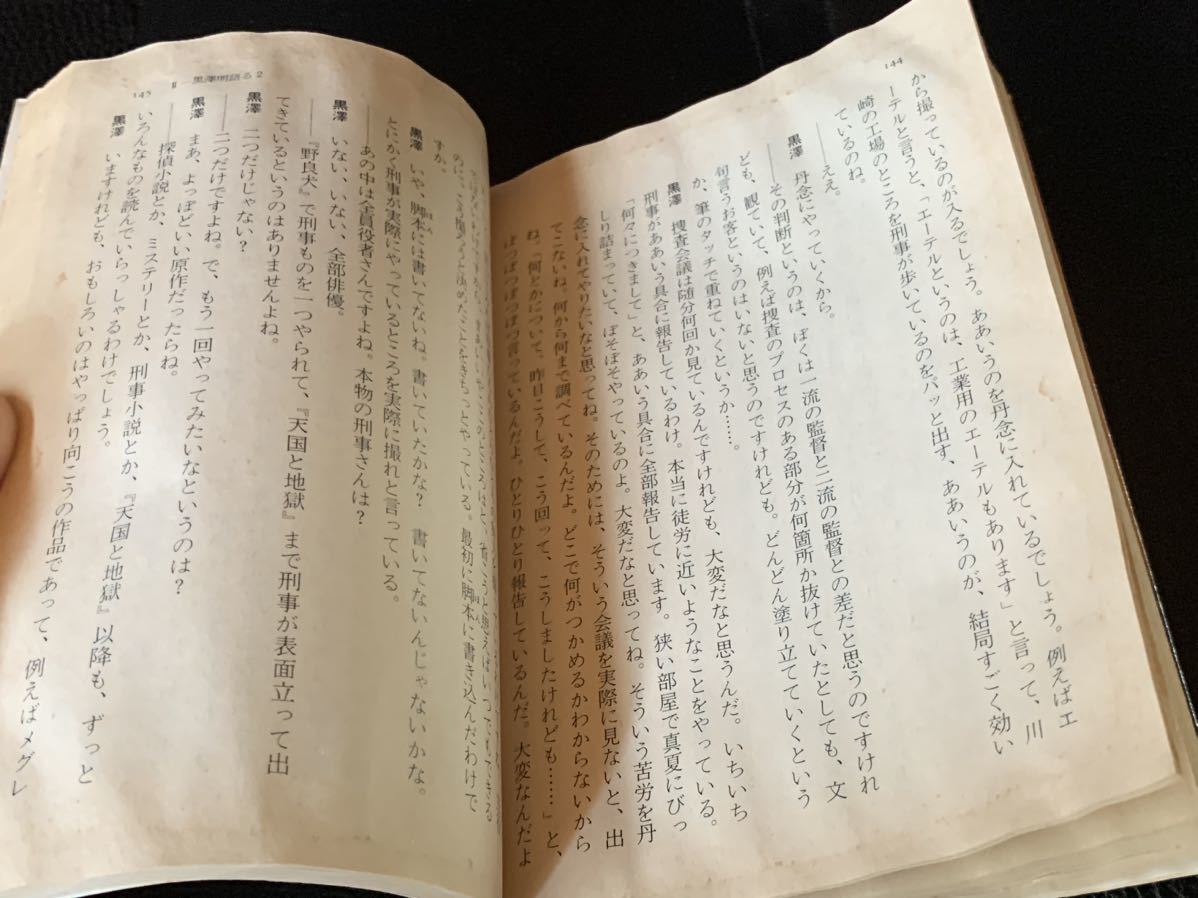 144
から撮っているのが入るでしょう。ああいうのを丹念に入れているでしょう。例えばエ
ーテルと言うと、「エーテルというのは、工業用のエーテルもあります」と言って、川
崎の工場のところを刑事が歩いているのをパッと出す、ああいうのが、結局すごく効い
ているのね。
――ええ。
黒澤　丹念にやっていくから。
――その判断というのは、ぼくは一流の監督と二流の監督との差だと思うのですけれ
ども、観ていて、例えば捜査のプロセスのある部分が何箇所か抜けていたとしても、文
句言うお客というのはいないと思うのですけれども。どんどん塗り立てていくという
か、筆のタッチで重ねていくというか……。
黒澤　捜査会議は随分何回か見ているんですけれども、大変だなと思うんだ。いちいち
刑事がああいう具合に報告しているわけ。本当に徒労に近いようなことをやっている。
「何々につきまして」と、ああいう具合に全部報告しています。狭い部屋で真夏にびっ
しり詰まっていて、ぼそぼそやっているのよ。大変だなと思ってね。そういう苦労を丹
念に入れてやりたいなと思ってね。そのためには、そういう会議を実際に見ないと、出
てこないね。何から何まで調べているんだよ。どこで何がつかめるかわからないから
ね。「何とかについて、昨日こうして、こう回って、こうしましたけれども……」と、
ぼつぼつぼつぼつ言っているんだよ。ひとりひとり報告しているんだ。大変なんだよ
II―黒澤明語る 2
145
のに、ここ撮ろうと決めたことをきちっとやっている。最初に脚本に書き込んだわけで
すか。
黒澤　いや、脚本には書いてないね。書いていたかな？　書いてないんじゃないかな。
とにかく刑事が実際にやっているところを実際に撮れと言っている。
――あの中は全員役者さんですよね。本物の刑事さんは？
黒澤　いない、いない、全部俳優。
――『野良犬』で刑事ものを一つやられて、『天国と地獄』まで刑事が表面立って出
てきているというのはありませんよね。
黒澤　二つだけじゃない？
――二つだけですよね。で、もう一回やってみたいなというのは？
黒澤　まあ、よっぽどいい原作だったらね。
――探偵小説とか、ミステリーとか、刑事小説とか、『天国と地獄』以降も、ずっと
いろんなものを読んでいらっしゃるわけでしょう。
黒澤　いますけれども、おもしろいのはやっぱり向こうの作品であって、例えばメグレ